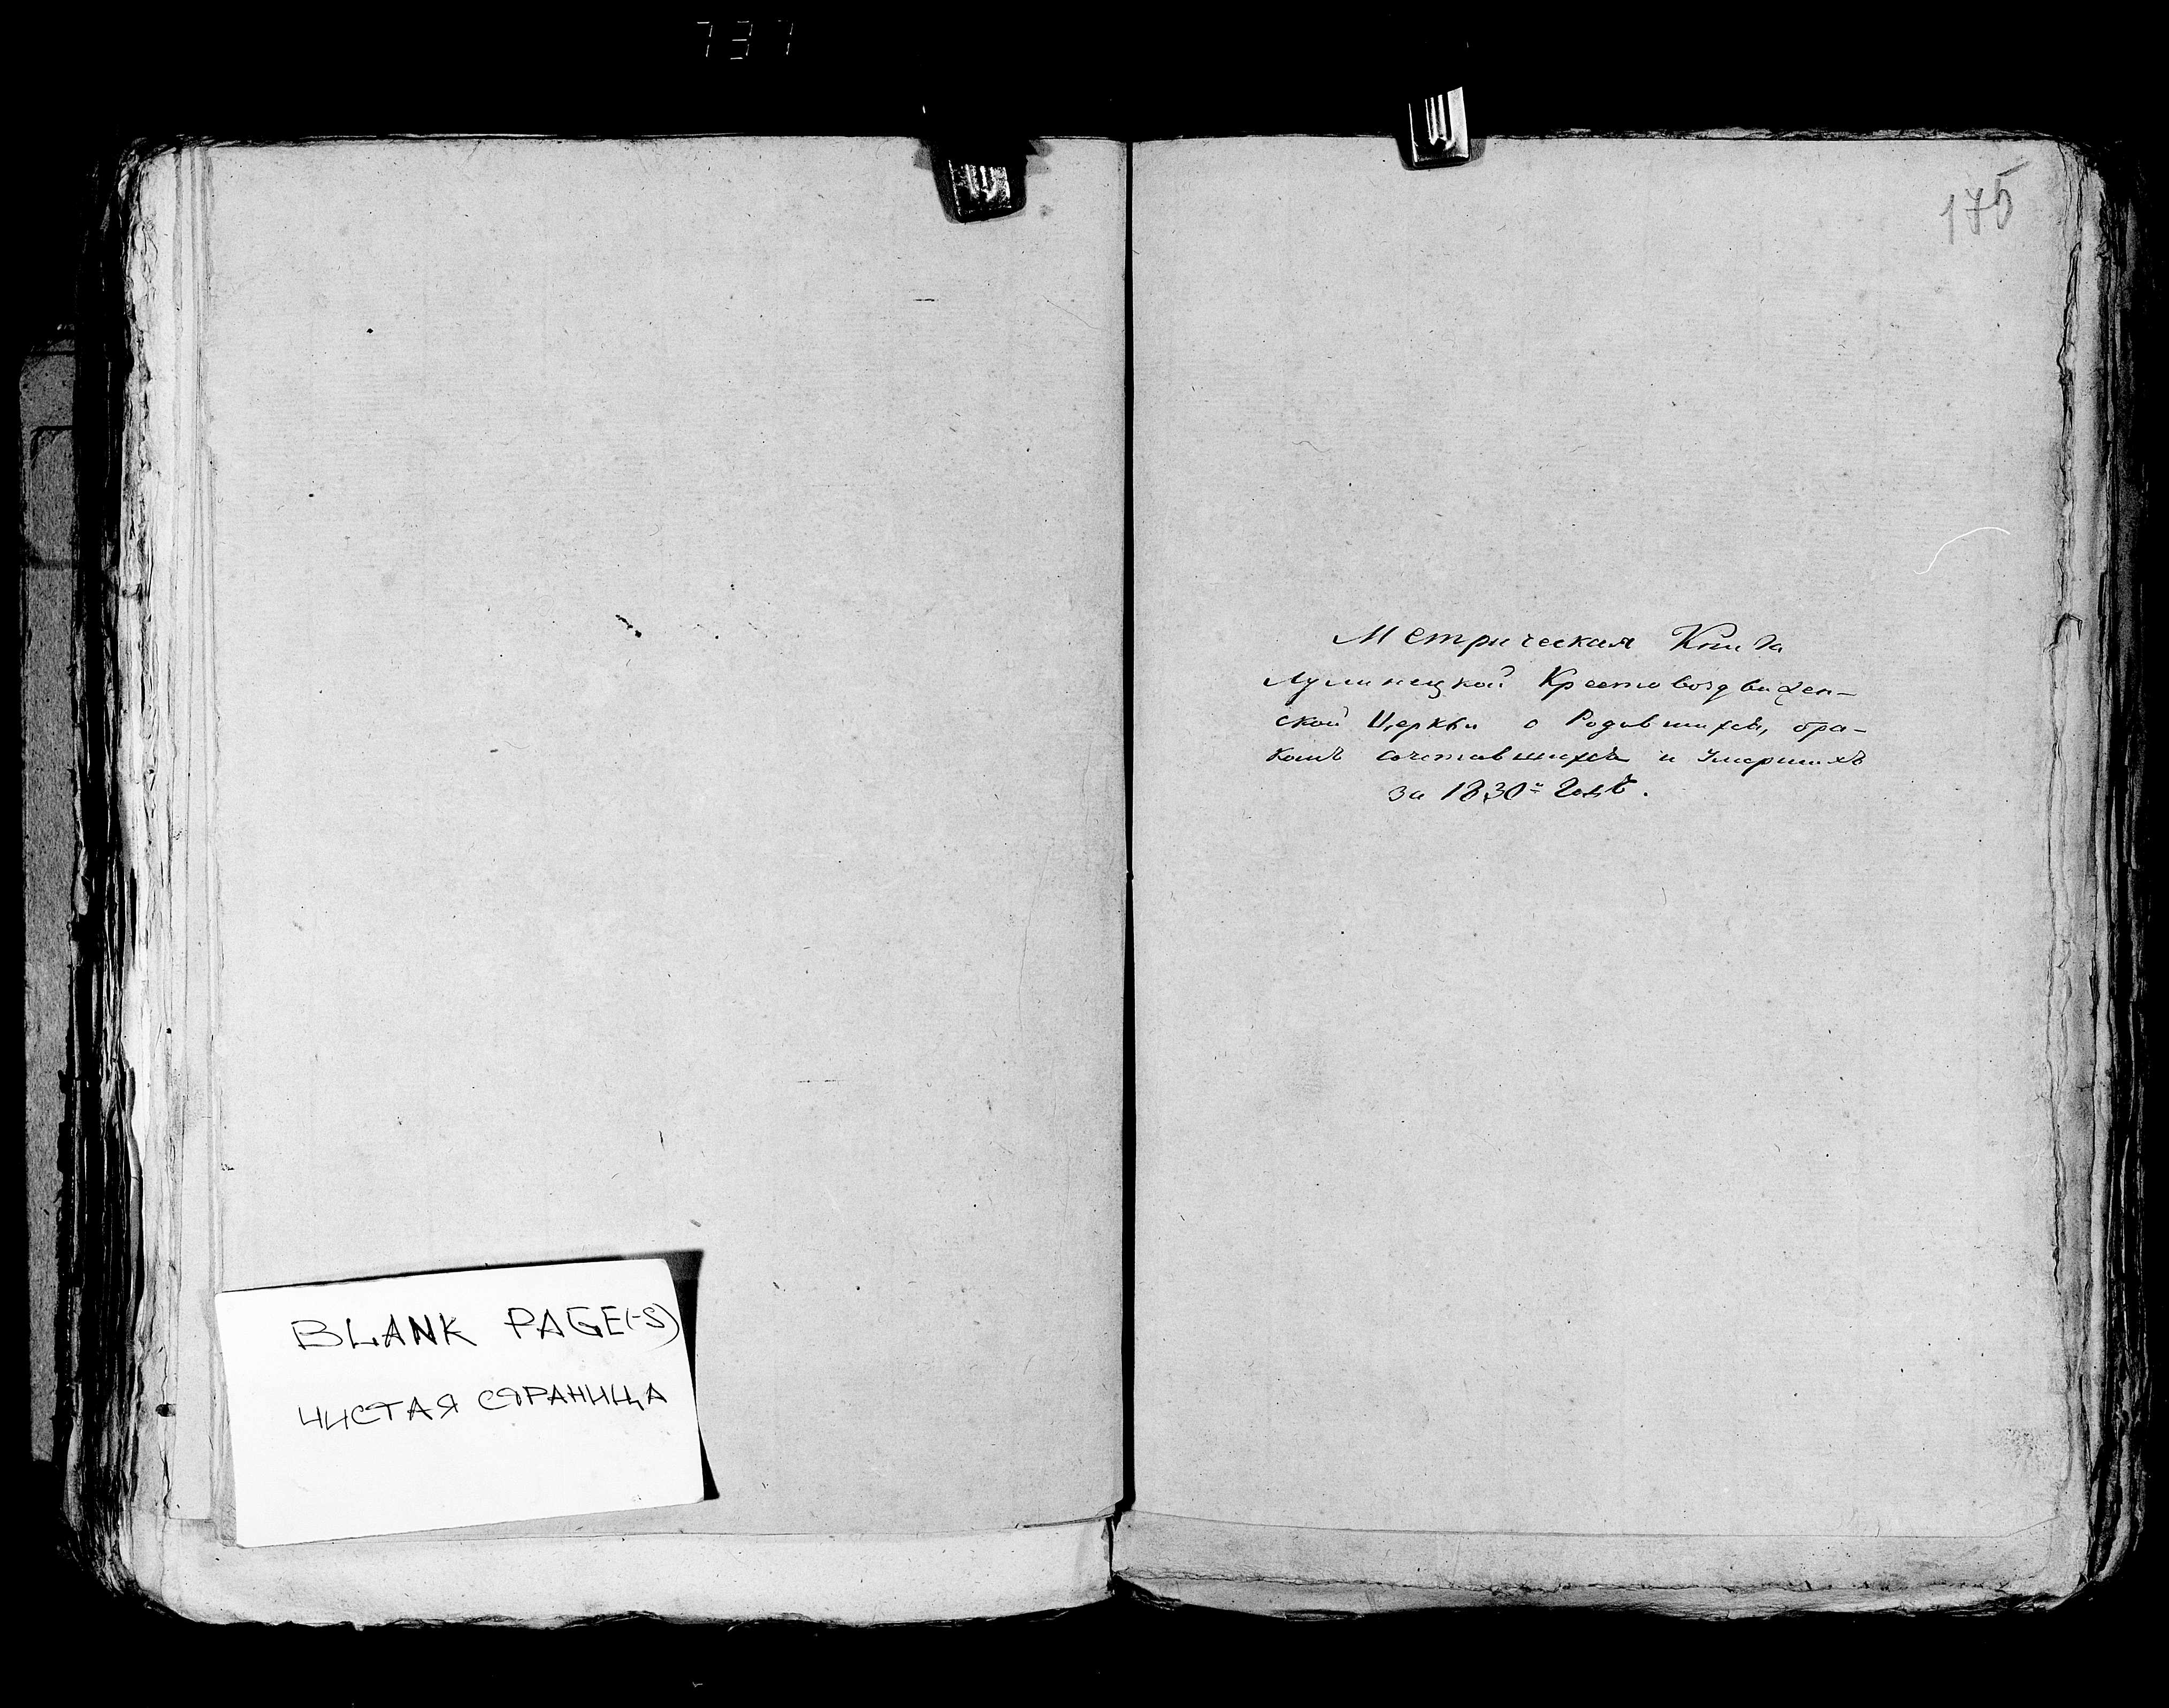 737
175
Метрическая Книга
Лулинецкой Крестовоздвижен-
ской Церкви о Родившихся, бра-
комъ сочетавшихся и Умершихъ
за 1830й Годъ.
BLANK PAGE(-S)
ЧИСТАЯ СТРАНИЦА